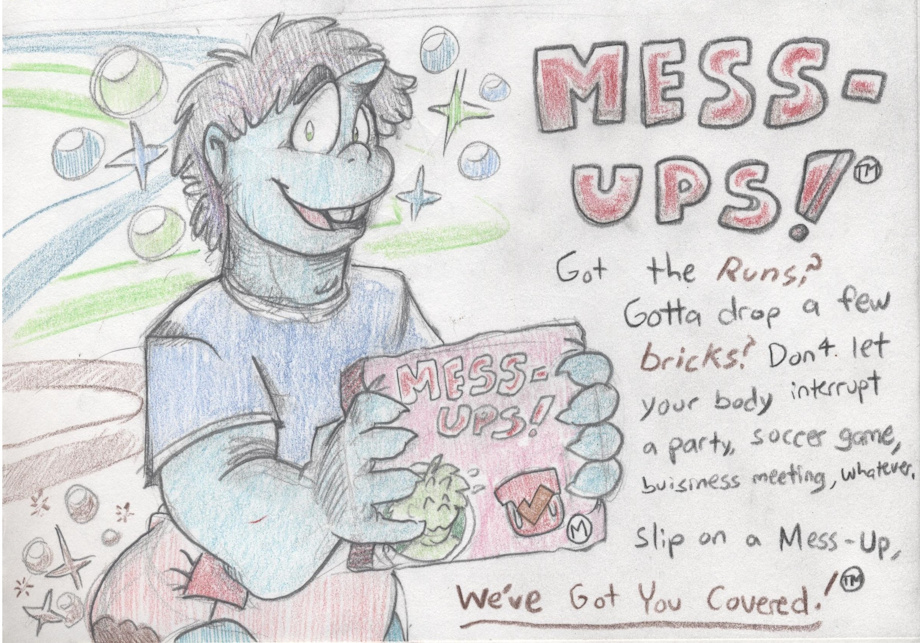 MESS-
UPS! TM
Got the Runs?
Gotta drop a few
bricks? Don't let
your body interrupt
a party, soccer game,
buisiness meeting, whatever.
Slip on a Mess-Up,
We've Got You Covered! TM
MESS-
UPS!
M